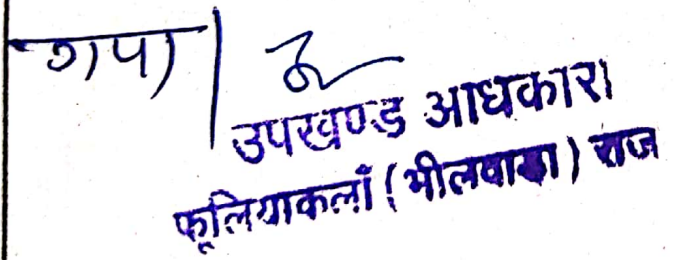 गया।
उपखण्ड अधिकारी
फूलियाकलाँ (भीलवाड़ा) राज